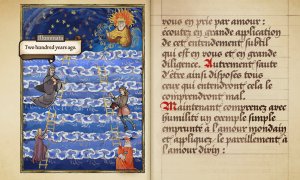 Illuminata
Two hundred years ago.
vous en prie par amour :
écoutez en grande application
de cet entendement subtil
qui est en vous et en grande
diligence. Autrement faute
d'être ainsi disposés tous
ceux qui entendront cela le
comprendront mal.
Maintenant comprenez avec
humilité un exemple simple
emprunté à l'amour mondain
et appliquez le pareillement à
l'amour divin :